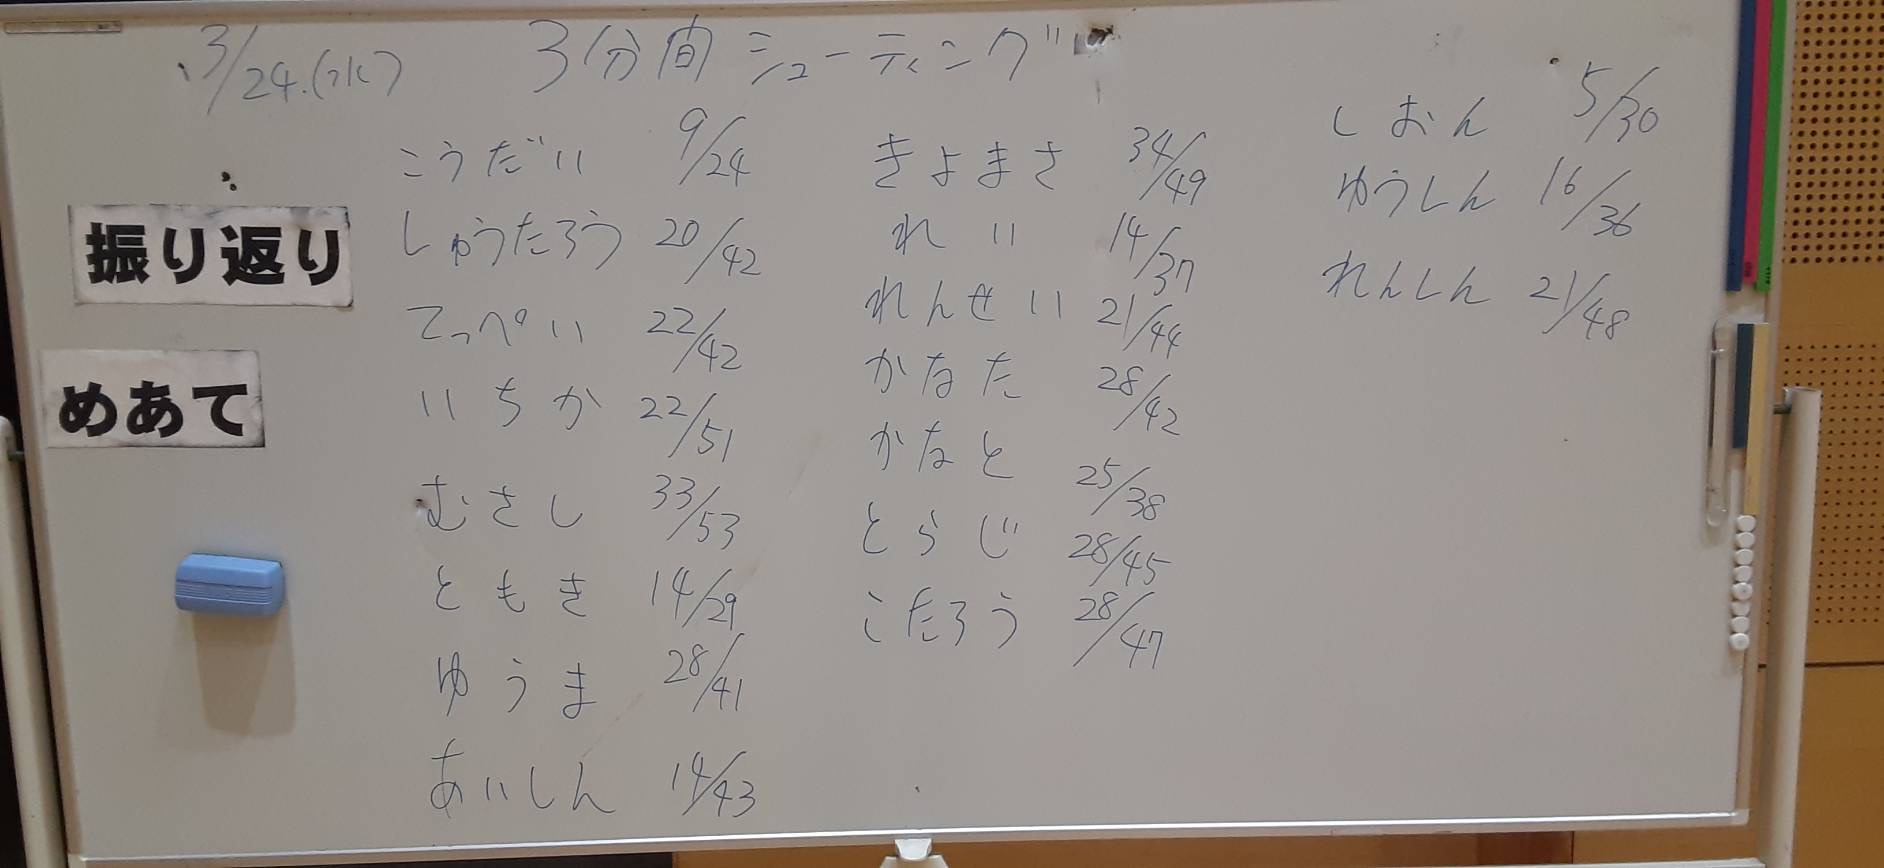 3/24.(水) 3分間シューティング
こうだい 9/24
しゅうたろう 20/42
てっぺい 22/42
いちか 22/51
むさし 33/53
ともき 14/29
ゆうま 28/41
あいしん 14/43
きよまさ 34/49
れい 14/37
れんせい 21/44
かなた 28/42
かなと 25/38
とらじ 28/45
こたろう 28/47
しおん 5/30
ゆうしん 16/36
れんしん 21/48
振り返り
めあて